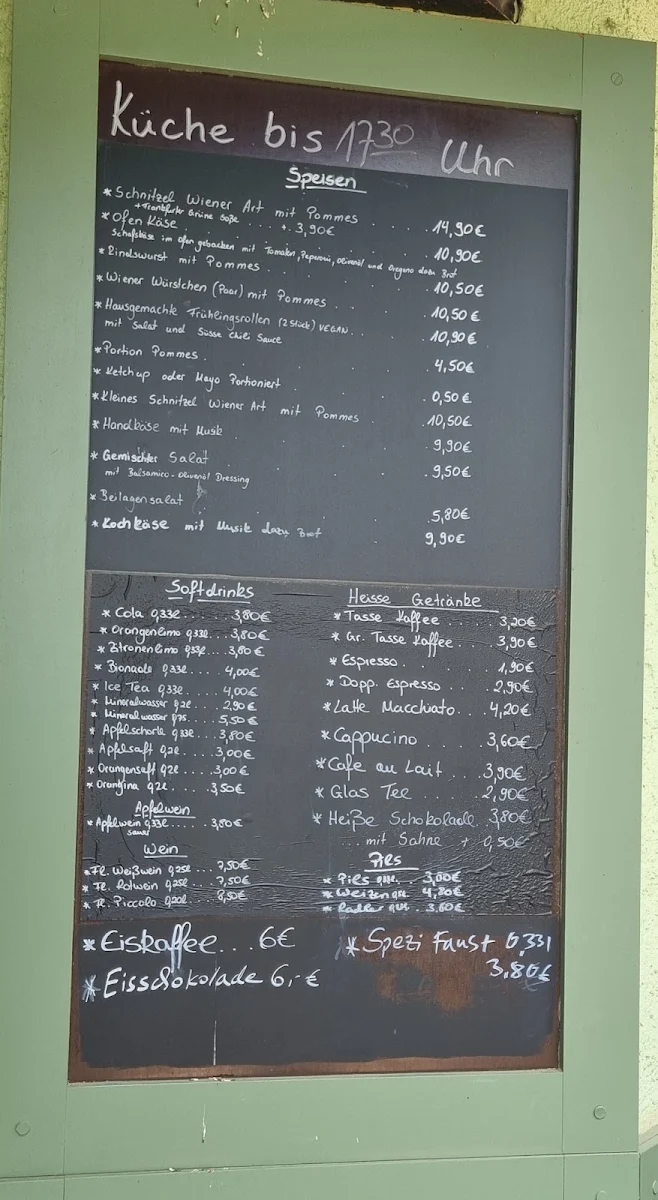 Küche bis 17 30 Uhr
Speisen
* Schnitzel Wiener Art mit Pommes . . . 14,90€
+ Frankfurter Grüne Soße . . . . +. 3,90€
* Ofen Käse . . . 10,90€
Schafskäse im Ofen gebacken mit Tomaten, Peperoni, Olivenöl und Oregano dazu Brot
* Rindswurst mit Pommes . . . 10,50€
* Wiener Würstchen (Paar) mit Pommes . . . 10,50€
* Hausgemachte Frühlingsrollen (2 Stück) VEGAN . . . 10,90€
mit Salat und Süsse Chili Sauce
* Portion Pommes . . . 4,50€
* Ketchup oder Mayo Portioniert . . . 0,50€
* Kleines Schnitzel Wiener Art mit Pommes . 10,50€
* Handkäse mit Musik . . . 9,90€
* Gemischter Salat . . . 9,50€
mit Balsamico-Olivenöl Dressing
* Beilagensalat . . . 5,80€
* Kochkäse mit Musik dazu Brot . 9,90€
Softdrinks
* Cola 0,33l .... 3,80€
* Orangenlimo 0,33l .. 3,80€
* Zitronenlimo 0,33l ... 3,80€
* Bionade 0,33l .... 4,00€
* Ice Tea 0,33l .... 4,00€
* Mineralwasser 0,2l .... 2,90€
* Mineralwasser 0,75 .... 5,50€
* Apfelschorle 0,33l .... 3,80€
* Apfelsaft 0,2l .... 3,00€
* Orangensaft 0,2l .... 3,00€
* Orangina 0,2l .... 3,50€
Apfelwein
* Apfelwein 0,33l .... 3,80€
sauer
Wein
* Fl. Weißwein 0,25l ... 7,50€
* Fl. Rotwein 0,25l ... 7,50€
* Fl. Piccolo 0,20l ... 8,50€
Heisse Getränke
* Tasse Kaffee . . . 3,20€
* Gr. Tasse Kaffee . . . 3,90€
* Espresso . . . 1,90€
* Dopp. Espresso . . . 2,90€
* Latte Macchiato . . 4,20€
* Cappucino . . . 3,60€
* Cafe au Lait . . . 3,90€
* Glas Tee . . . 2,90€
* Heiße Schokolade . 3,80€
... mit Sahne + 0,50€
Pils
* Pils .... 3,00€
* Weizen ... 4,80€
* Radler .. 3,60€
* Eiskaffee... 6€
* Eisschokolade 6,-€
* Spezi Faust 0,33l
3.80€